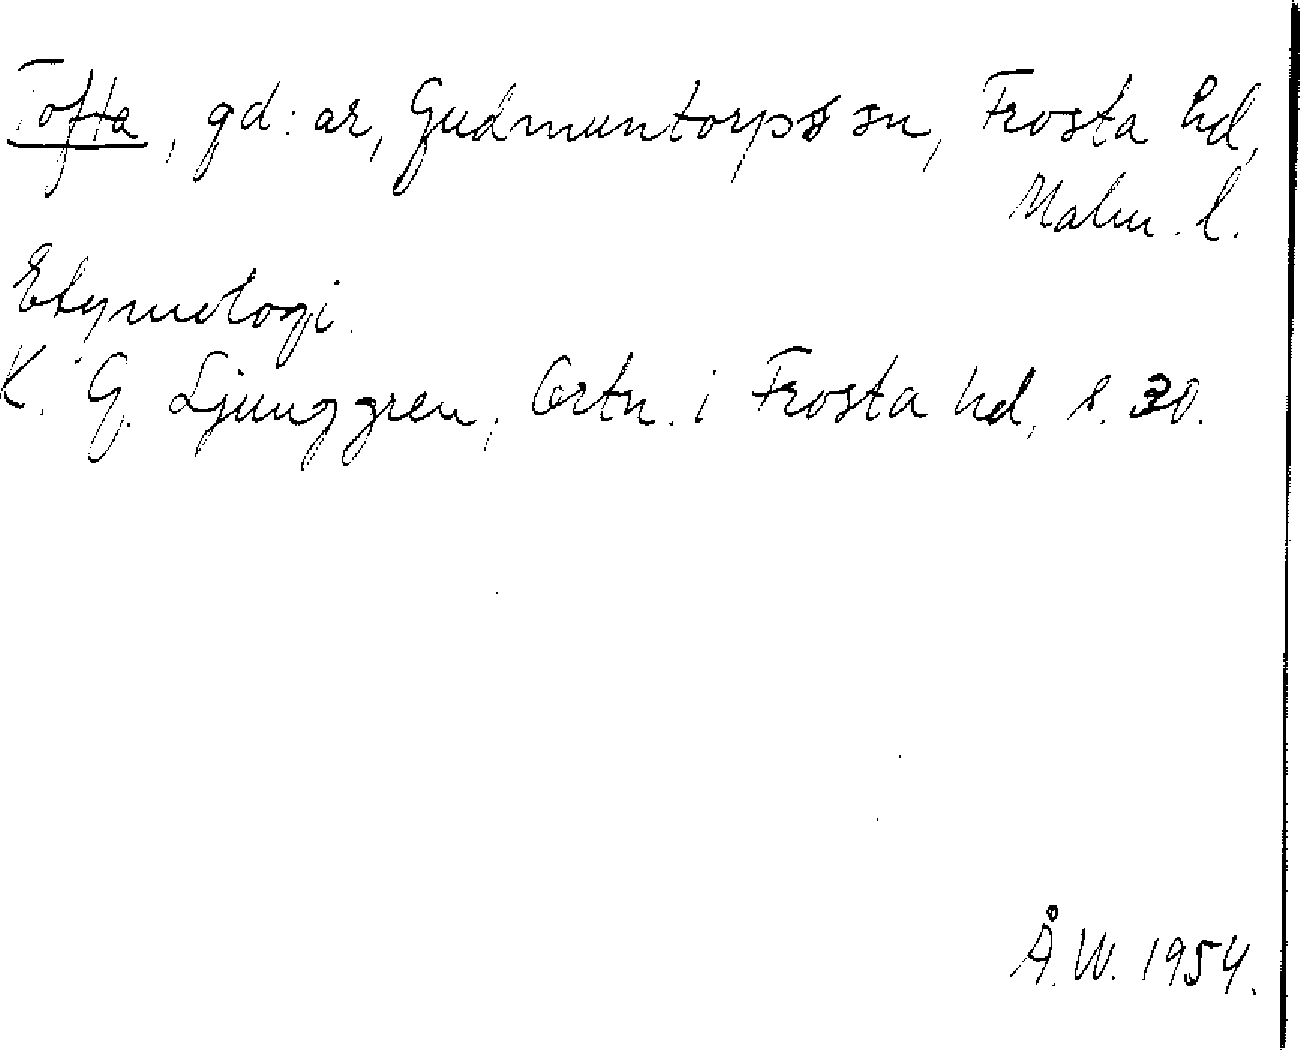 Tofta, gd:ar, Gudmuntorps sn, Frosta hd,
Malm. l.
Etymologi.
K. G. Ljunggren, Ortn. i Frosta hd, s. 30.
Å. W. 1954.